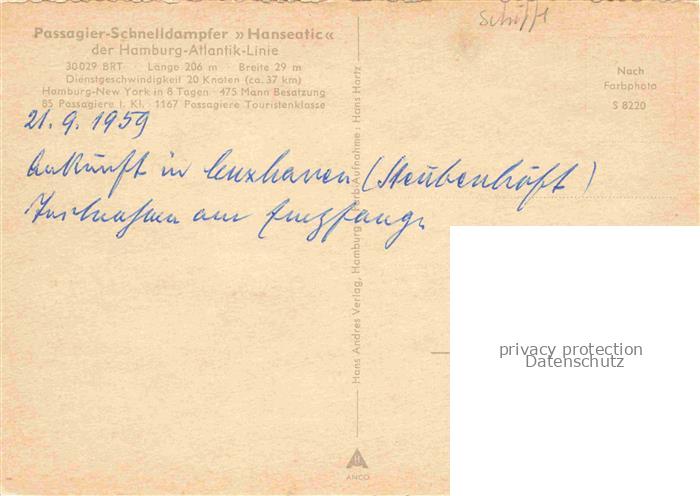 Schiffe
Passagier-Schnelldampfer »Hanseatic«
der Hamburg-Atlantik-Linie
30029 BRT · Länge 206 m · Breite 29 m
Dienstgeschwindigkeit 20 Knoten (ca. 37 km)
Hamburg-New York in 8 Tagen · 475 Mann Besatzung
85 Passagiere I. Kl. · 1167 Passagiere Touristenklasse
Nach
Farbphoto
S 8220
21.9.1959
Ankunft in Cuxhaven (Steubenhöft)
Teilnahme am Empfang.
Hans Andres Verlag, Hamburg · Farb-Aufnahme: Hans Hartz
ANCO
privacy protection
Datenschutz